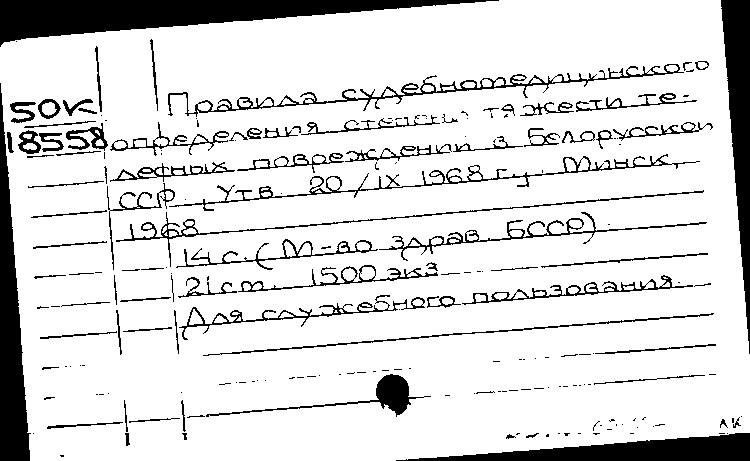 50К
18558
Правила судебномедицинского
определения степени тяжести те-
лесных повреждений в Белорусской
ССР. [Утв. 20/IX 1968 г.]. Минск,
1968
14 с. (М-во здрав. БССР).
21 см. 1500 экз
Для служебного пользования.
АК